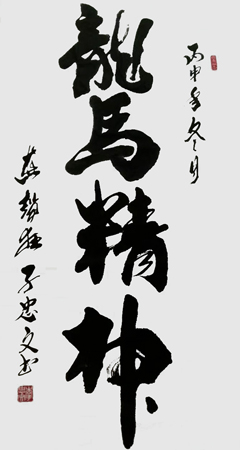 丙申年冬月
龍馬精神
燕趙子忠文书